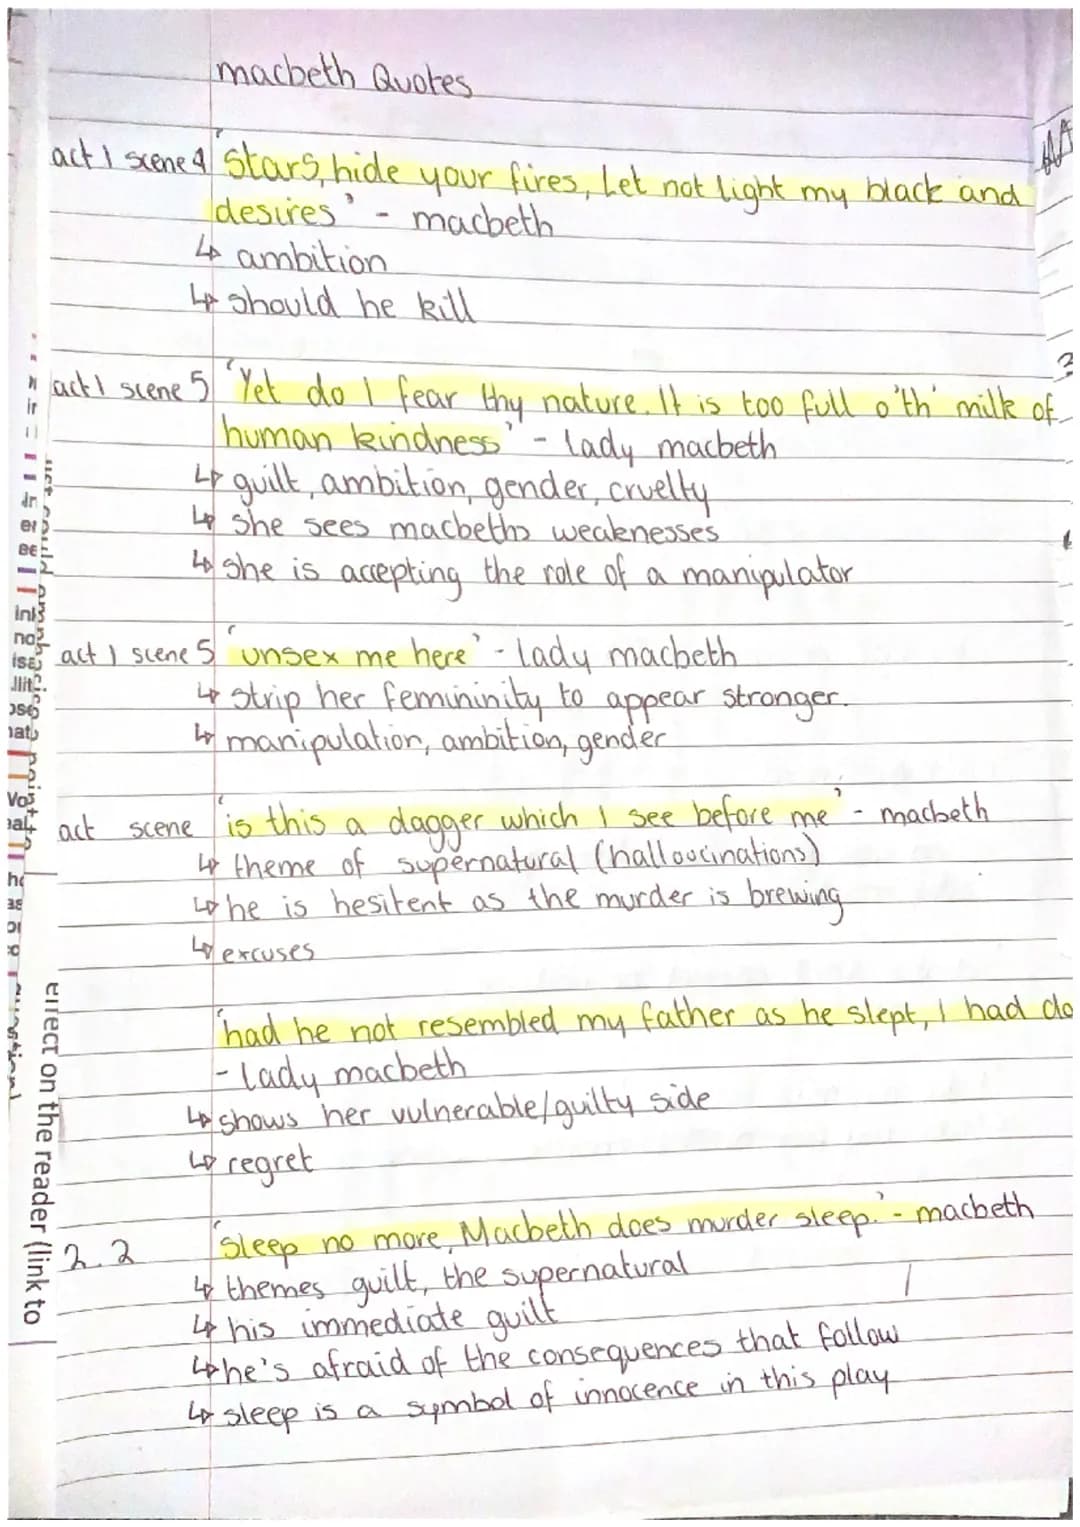 macbeth Quotes
act 1 scene 4 'Stars, hide your fires, Let not light my black and
desires' - macbeth
↳ ambition
↳ should he kill
act 1 scene 5 'Yet do I fear thy nature. It is too full o'th' milk of
human kindness' - lady macbeth
↳ guilt, ambition, gender, cruelty
↳ she sees macbeths weaknesses
↳ she is accepting the role of a manipulator
act 1 scene 5 'unsex me here' - lady macbeth
↳ strip her femininity to appear stronger.
↳ manipulation, ambition, gender
act scene 'is this a dagger which I see before me' - macbeth
↳ theme of supernatural (halloucinations)
↳ he is hesitent as the murder is brewing
↳ excuses
'had he not resembled my father as he slept, I had do
- lady macbeth
↳ shows her vulnerable/guilty side
↳ regret
2.2 'Sleep no more, Macbeth does murder sleep.' - macbeth
↳ themes guilt, the supernatural
↳ his immediate guilt
↳ he's afraid of the consequences that follow
↳ sleep is a symbol of innocence in this play
effect on the reader (link to